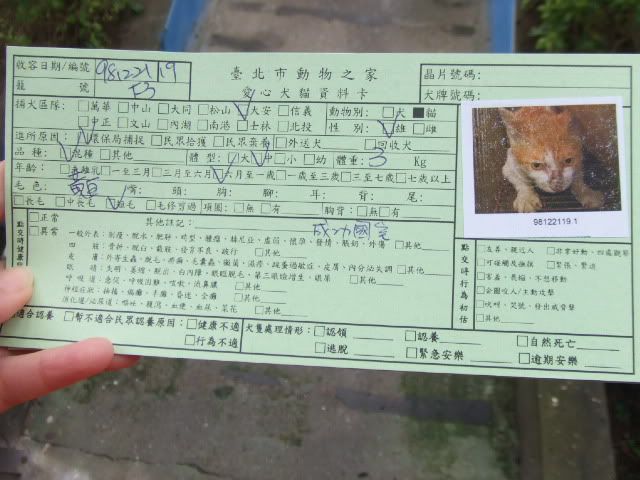 收容日期/編號 981221 19
臺北市動物之家
晶片號碼：
籠 號 F3
愛心犬貓資料卡
犬牌號碼：
捕犬區隊： □萬華 □中山 □大同 □松山 ☑大安 □信義 動物別： □犬 ■貓
□中正 □文山 □內湖 □南港 □士林 □北投 性 別： ☑雄 □雌
進所原因： ☑環保局捕捉 □民眾拾獲 □民眾棄養 □外送犬 □回收犬
品 種： ☑混種 □其他 體 型： □大 ☑中 □小 □幼 體重： 3 Kg
年齡： □離乳 □一至三月 □三至六月 ☑六月至一歲 □一歲至三歲 □三至七歲 □七歲以上
毛 色： 黃 嘴： 頭： 胸： 腳： 耳： 背： 尾：
□長毛 □中長毛 ☑短毛 □毛修剪過 項圈： □無 □有 胸背： □無 □有
98122119.1
點交時健康 □正常 其他註記： 成功國宅
□異常
一般外表：削瘦、脫水、肥胖、畸型、腫瘤、赫尼亞、虛弱、懷孕、發情、脹奶、外傷 □其他
四 肢：骨折、脫臼、截肢、發育不良、跛行 □其他
皮 膚：外寄生蟲、脫毛、疥癬、毛囊蟲、黴菌、濕疹、跳蚤過敏症、皮屑、內分泌失調 □其他
眼 睛：失明、萎縮、脫出、白內障、眼瞼脫毛、第三眼瞼增生、眼屎 □其他
呼 吸 道：急促、呼吸困難、咳嗽、流鼻膿 □其他
神經症狀：抽搐、癱瘓、半癱、昏迷、全癱 □其他
消化道/泌尿道：嘔吐、腹瀉、血便、血尿、尿石 □其他
點交時行為初估
□友善、親近人 □非常好動、四處觀察
□可碰觸及撫摸 □緊張、緊迫
□害羞、畏縮、不想移動
□企圖咬人/主動攻擊
□吠叫、哭號、發出威脅聲
□其他
適合認養 □暫不適合民眾認養原因： □健康不適 犬隻處理情形： □認領 □認養 □自然死亡
□行為不適 □逃脫 □緊急安樂 □逾期安樂